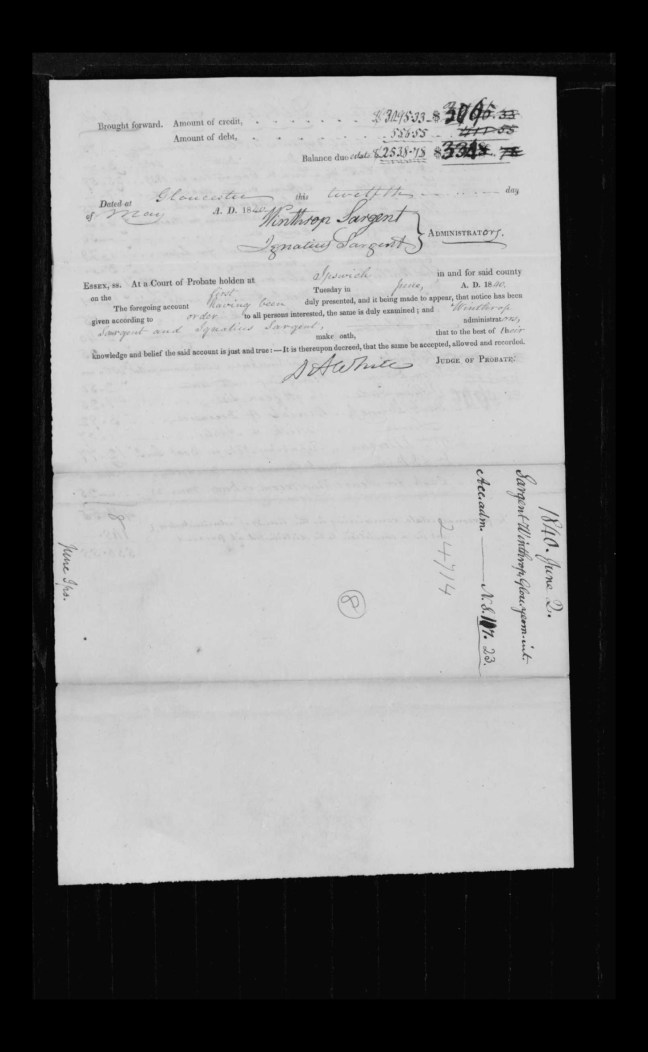 Brought forward. Amount of credit, $3095.33 $
Amount of debt, 556.55
Balance due estate $2538.78 $
Dated at Gloucester this twelfth day
of May A. D. 1840.
Winthrop Sargent
Ignatius Sargent } ADMINISTRATORS.
ESSEX, SS. At a Court of Probate holden at Ipswich in and for said county
on the first Tuesday in June, A. D. 1840.
The foregoing account having been duly presented, and it being made to appear, that notice has been
given according to order to all persons interested, the same is duly examined; and Winthrop
Sargent and Ignatius Sargent, administrators,
make oath, that to the best of their
knowledge and belief the said account is just and true:—It is thereupon decreed, that the same be accepted, allowed and recorded.
D A White JUDGE OF PROBATE.
1840. June 2.
Sargent Winthrop Glou. int.
Acc. adm. 23.
24714
8
June Ips.